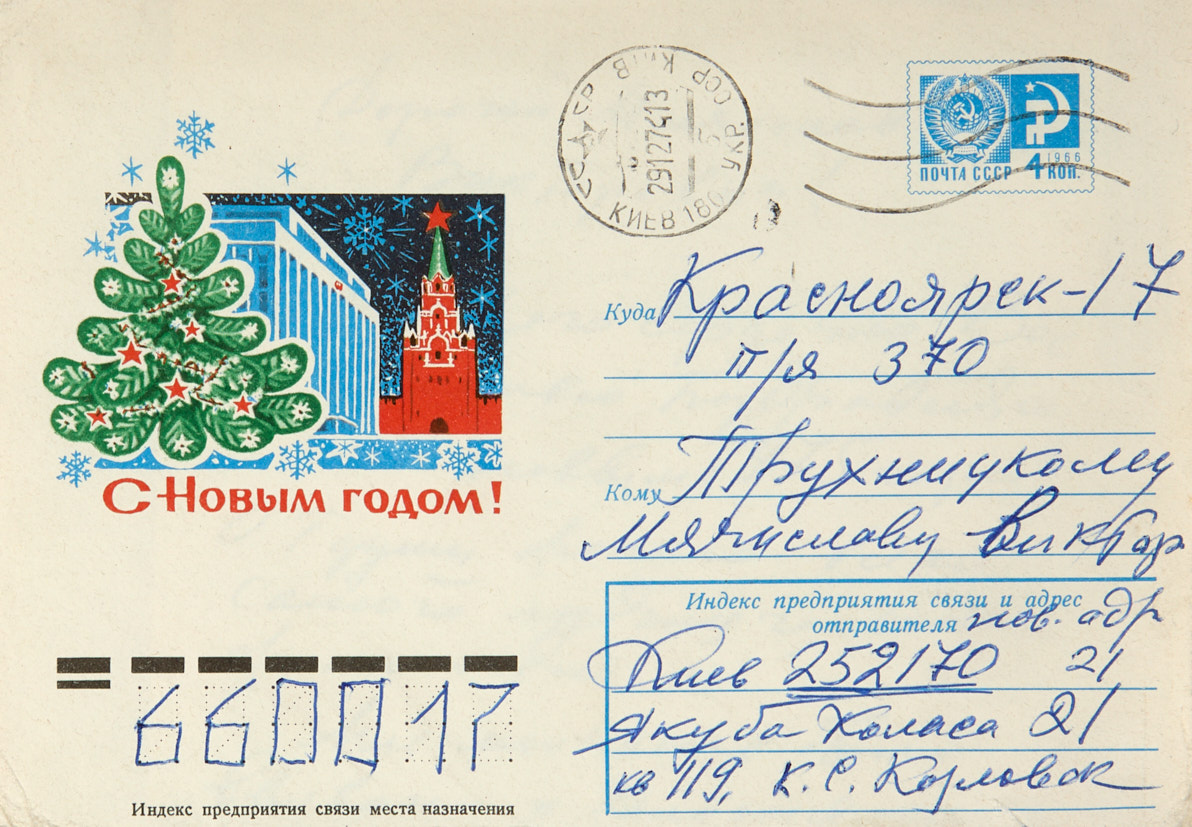 СССР КИЇВ УКР. ССР
291274 13
5
КИЕВ 180
1966
ПОЧТА СССР 4 КОП.
Куда Красноярск-17
п/я 370
Кому Трухницкому
Мячиславу Виктор
С Новым годом!
Индекс предприятия связи и адрес
отправителя нов. адр
Киев 252170 21
Якуба Коласа 21
кв 119, К. С.
660017
Индекс предприятия связи места назначения